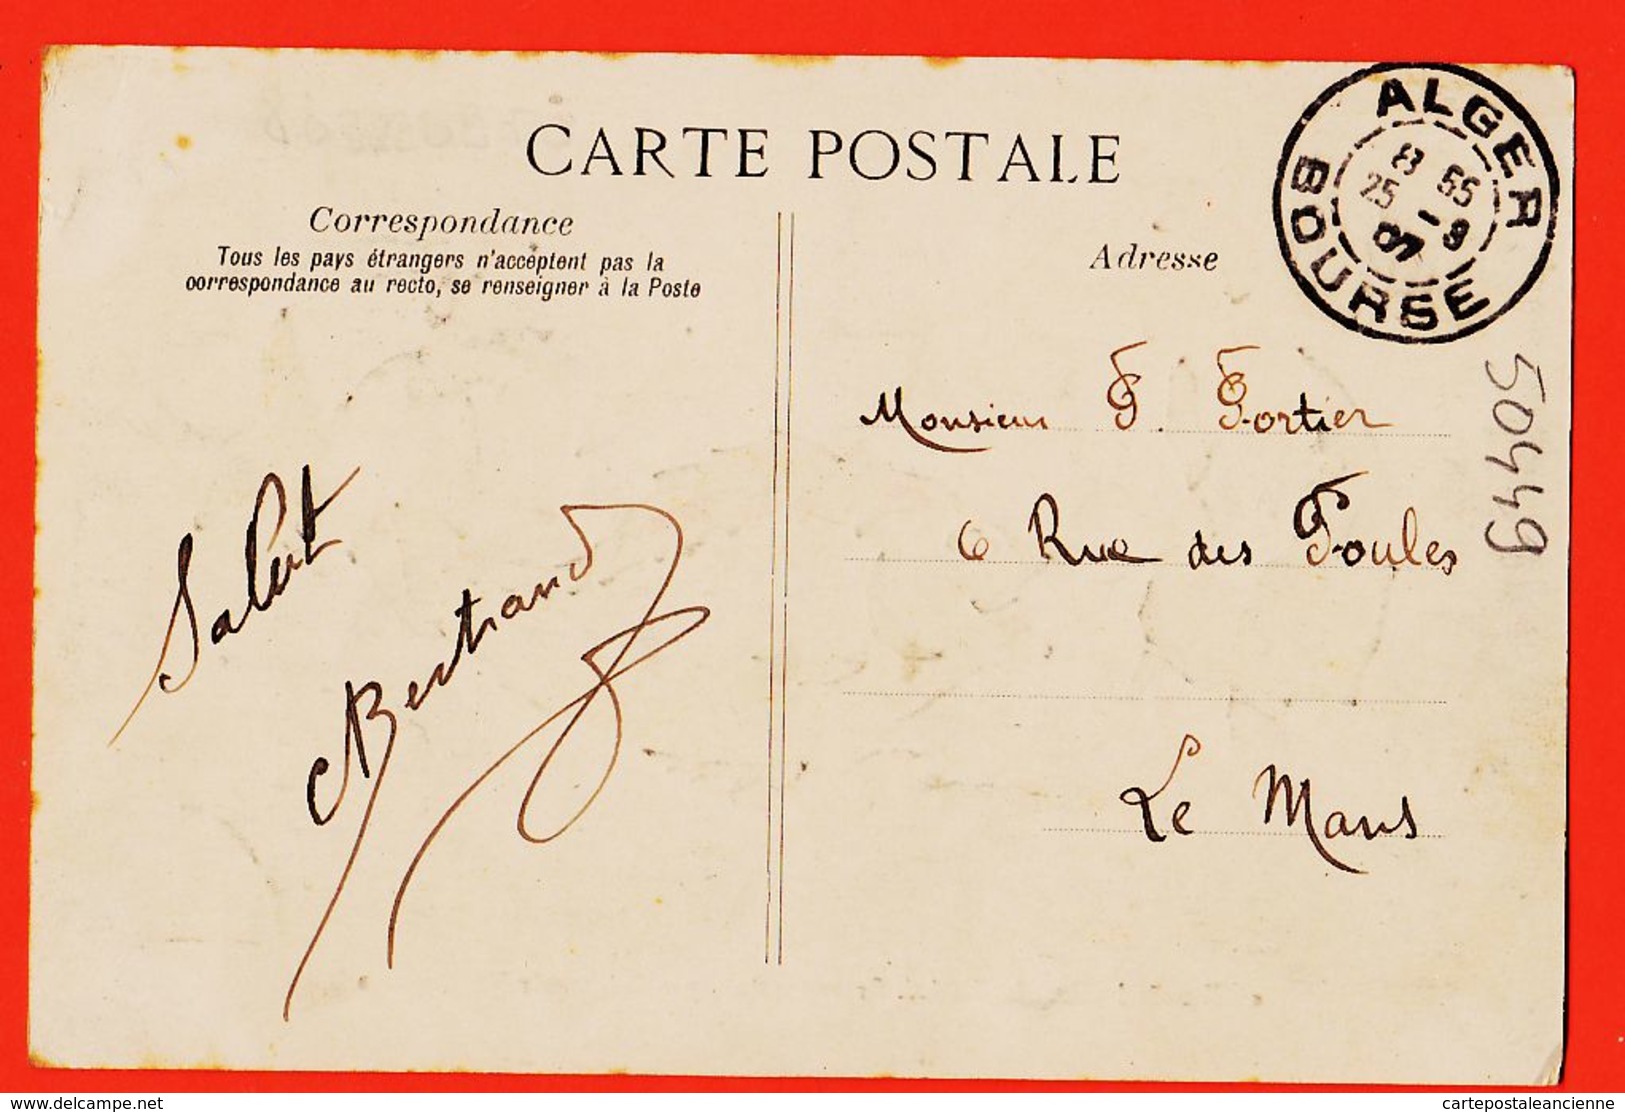 CARTE POSTALE
Correspondance
Tous les pays étrangers n'acceptent pas la
correspondance au recto, se renseigner à la Poste
Adresse
ALGER
BOURSE
8 55
25 -9
07
50449
Monsieur F. Fortier
6 Rue des Poules
Le Mans
Salut
Bertrand
delcampe.net
cartepostaleancienne